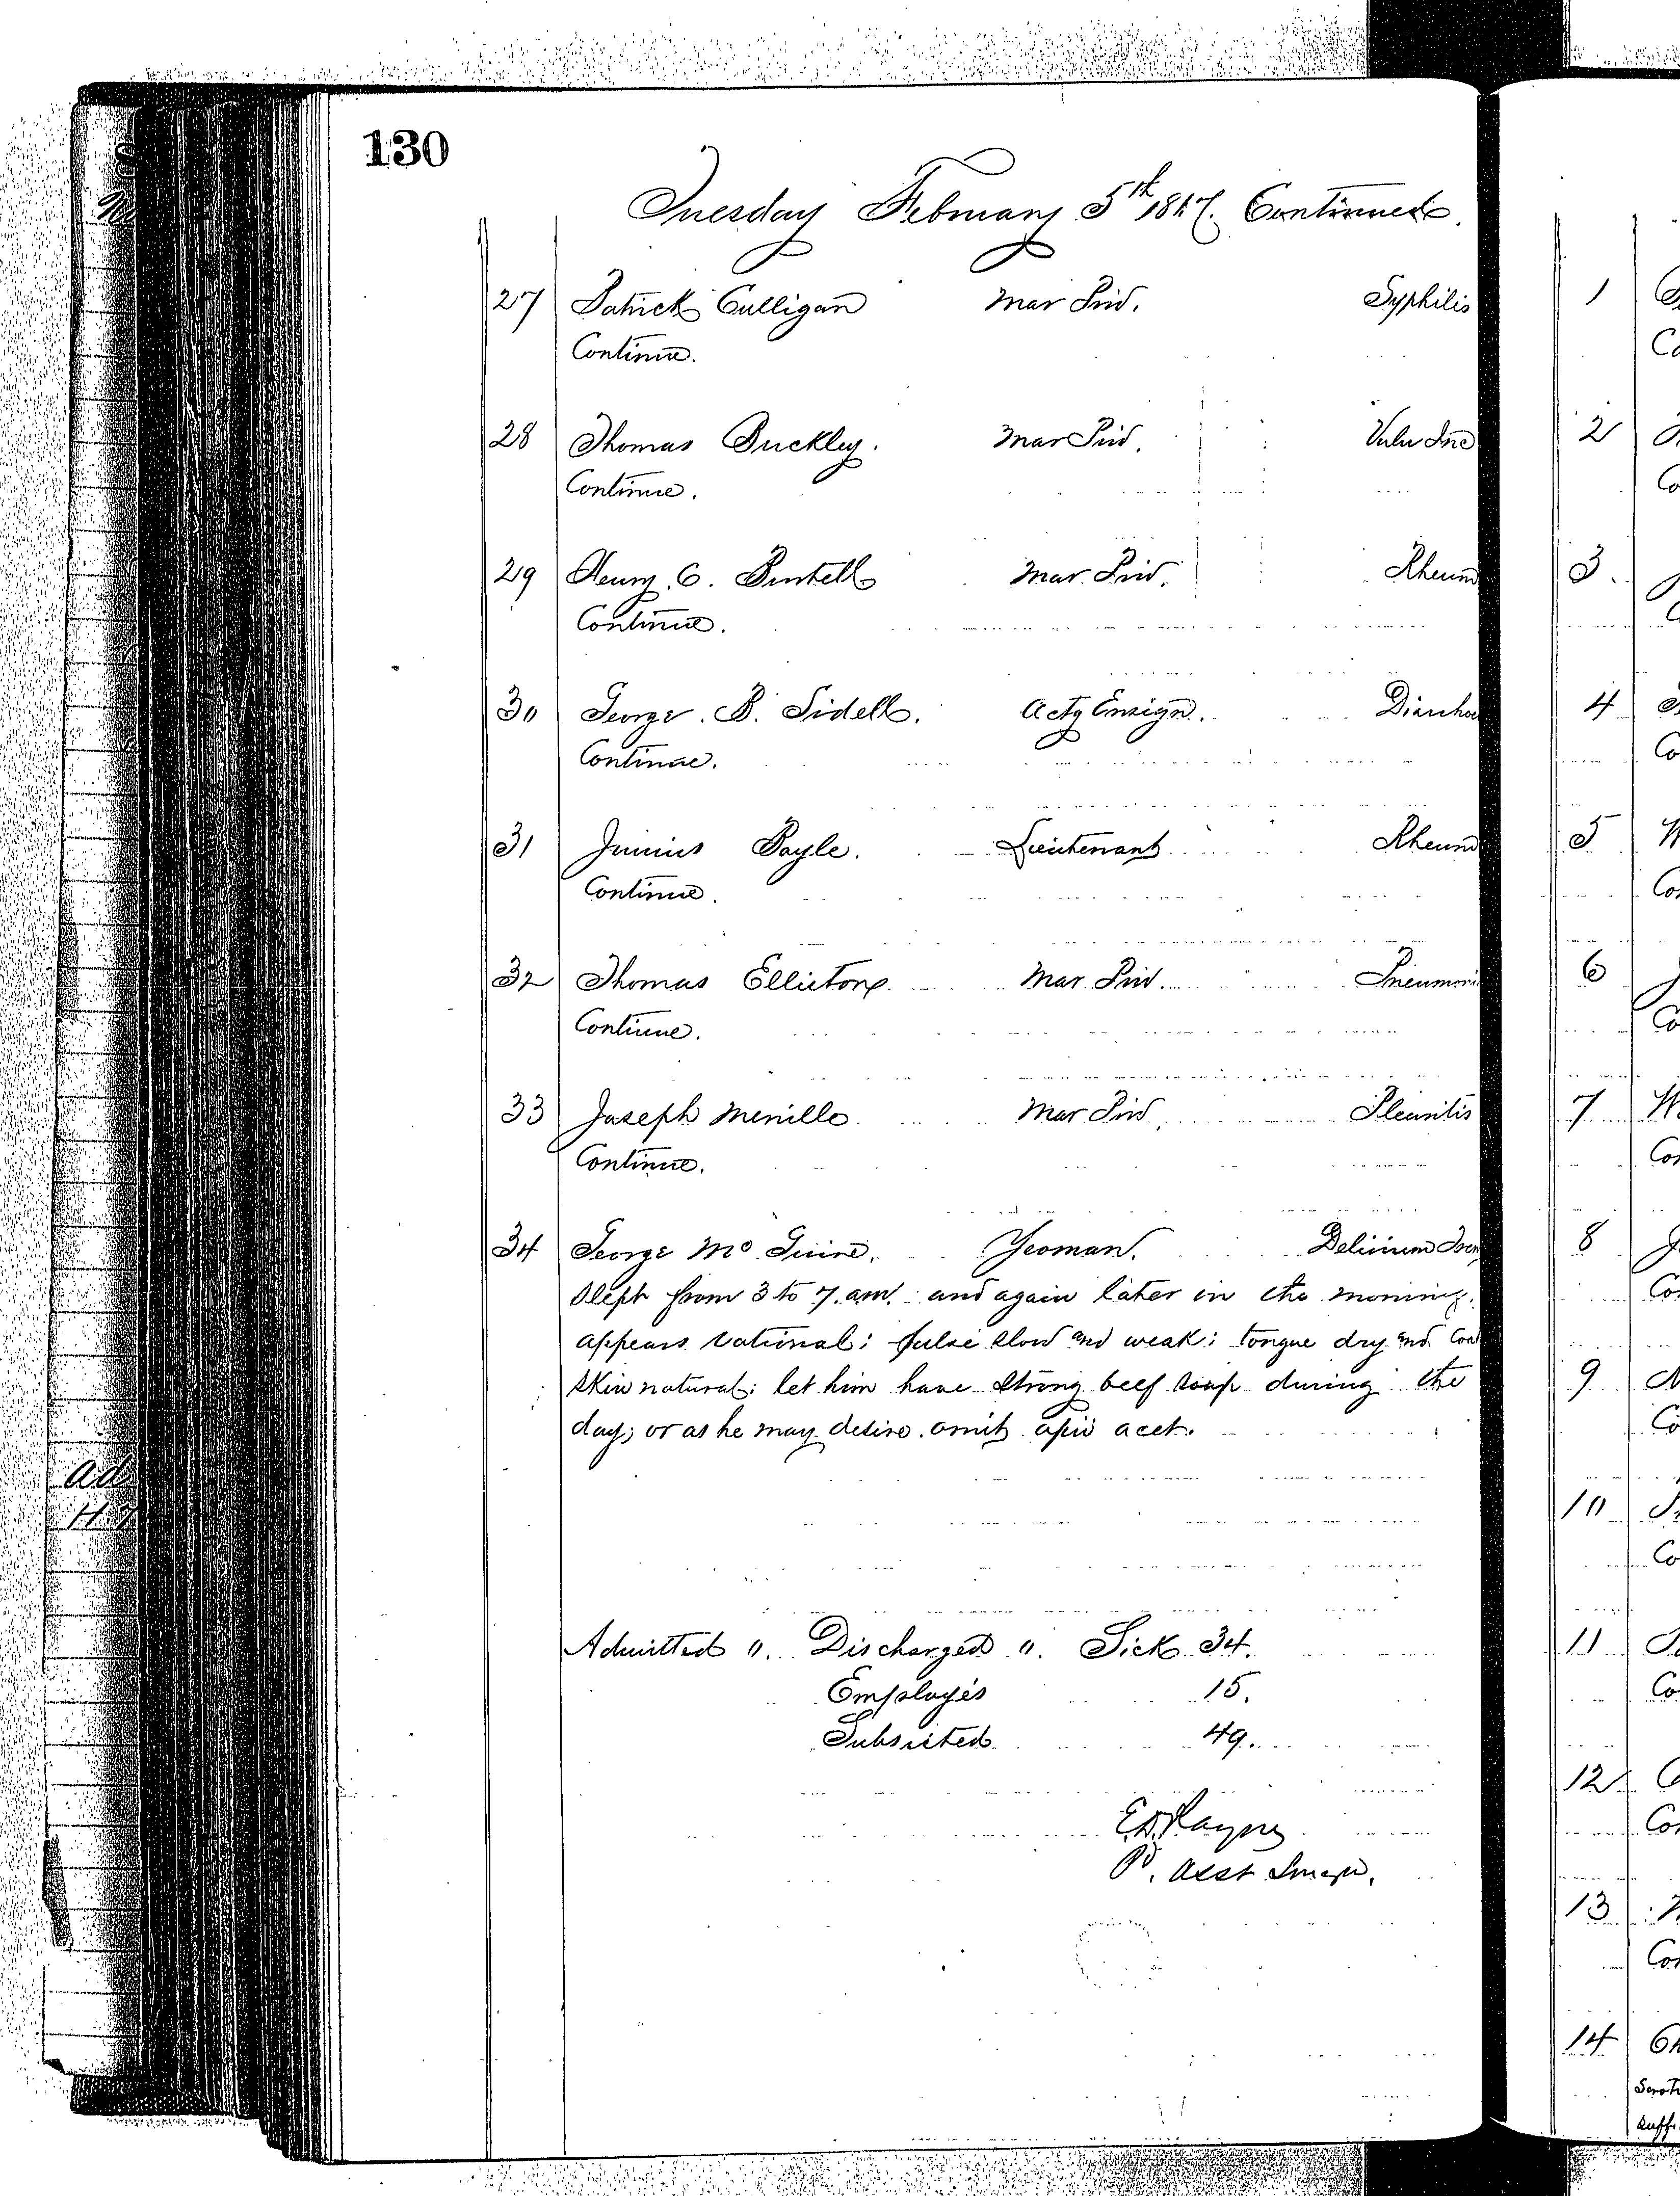 130
Tuesday February 5th 1867. Continued.
27 Patrick Culligan Mar Priv. Syphilis
Continue.
28 Thomas Buckley. Mar Priv. Vuln Inc
Continue.
29 Henry. C. Mar Priv. Rheum
Continue.
30 George. B. Sidell. Actg Ensign. Diarrhoe
Continue.
31 Junius Boyle. Lieutenant Rheum
Continue.
32 Thomas Mar. Priv. Pneumoni
Continue.
33 Joseph Mar Priv. Pleuritis
Continue.
34 George Mc Guire. Yeoman. Delirium Trem
Slept from 3 to 7. am. and again later in the morning.
appears rational: pulse slow and weak: tongue dry and Coat
skin natural: let him have strong beef soup during the
day; or as he may desire. omit apii acet.
Admitted ". Discharged ". Sick 34.
Employés 15.
Subsisted 49.
E.D. Payne
Pd. Asst Surgn.
1
Co
2
Co
3.
C
4
Co
5 W
Con
6 J
Co
7 W
Con
8 J
Con
9
Co
10
Co
11
Co
12 C
Con
13
Con
14 Ch
Scrot
suff.
Ad